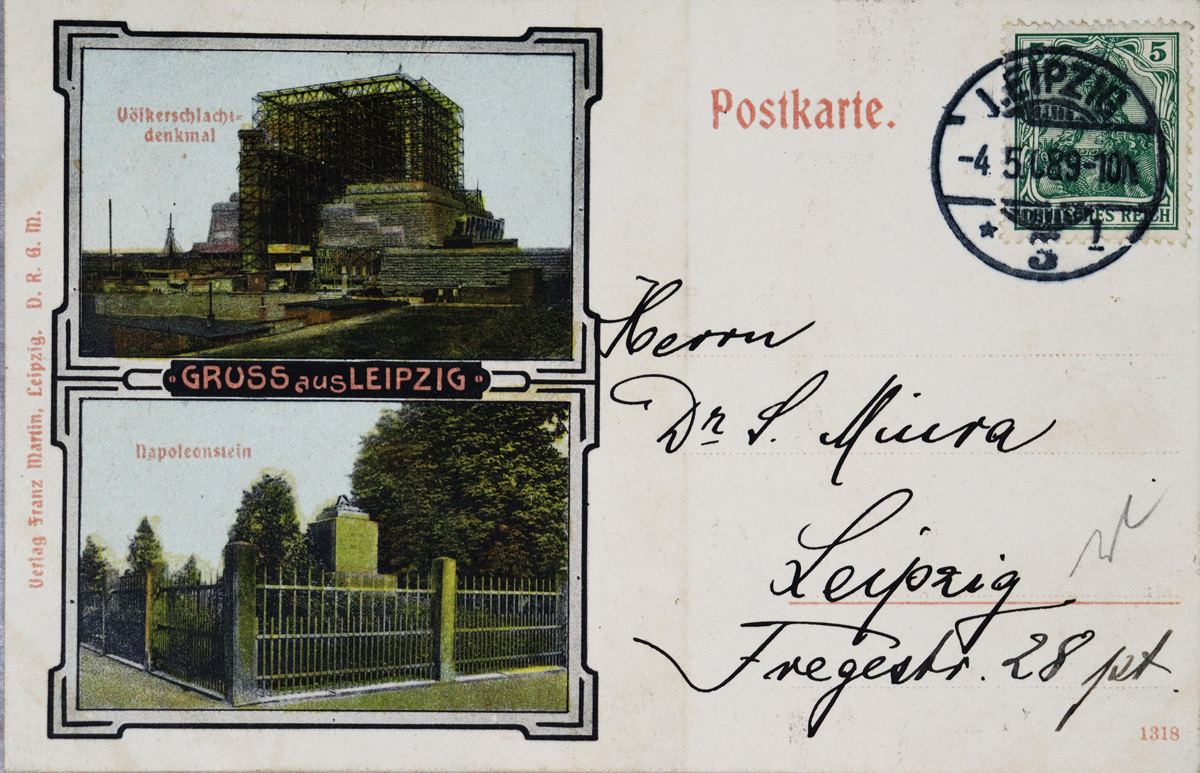 Völkerschlacht=
denkmal
GRUSS aus LEIPZIG
Napoleonstein
Verlag Franz Martin, Leipzig. D. R. G. M.
Postkarte.
5
DEUTSCHES REICH
LEIPZIG
-4 5 08 9-10
* 5 1
Herrn
Dr. S. Miura
Leipzig
Fregestr. 28 pt.
1318